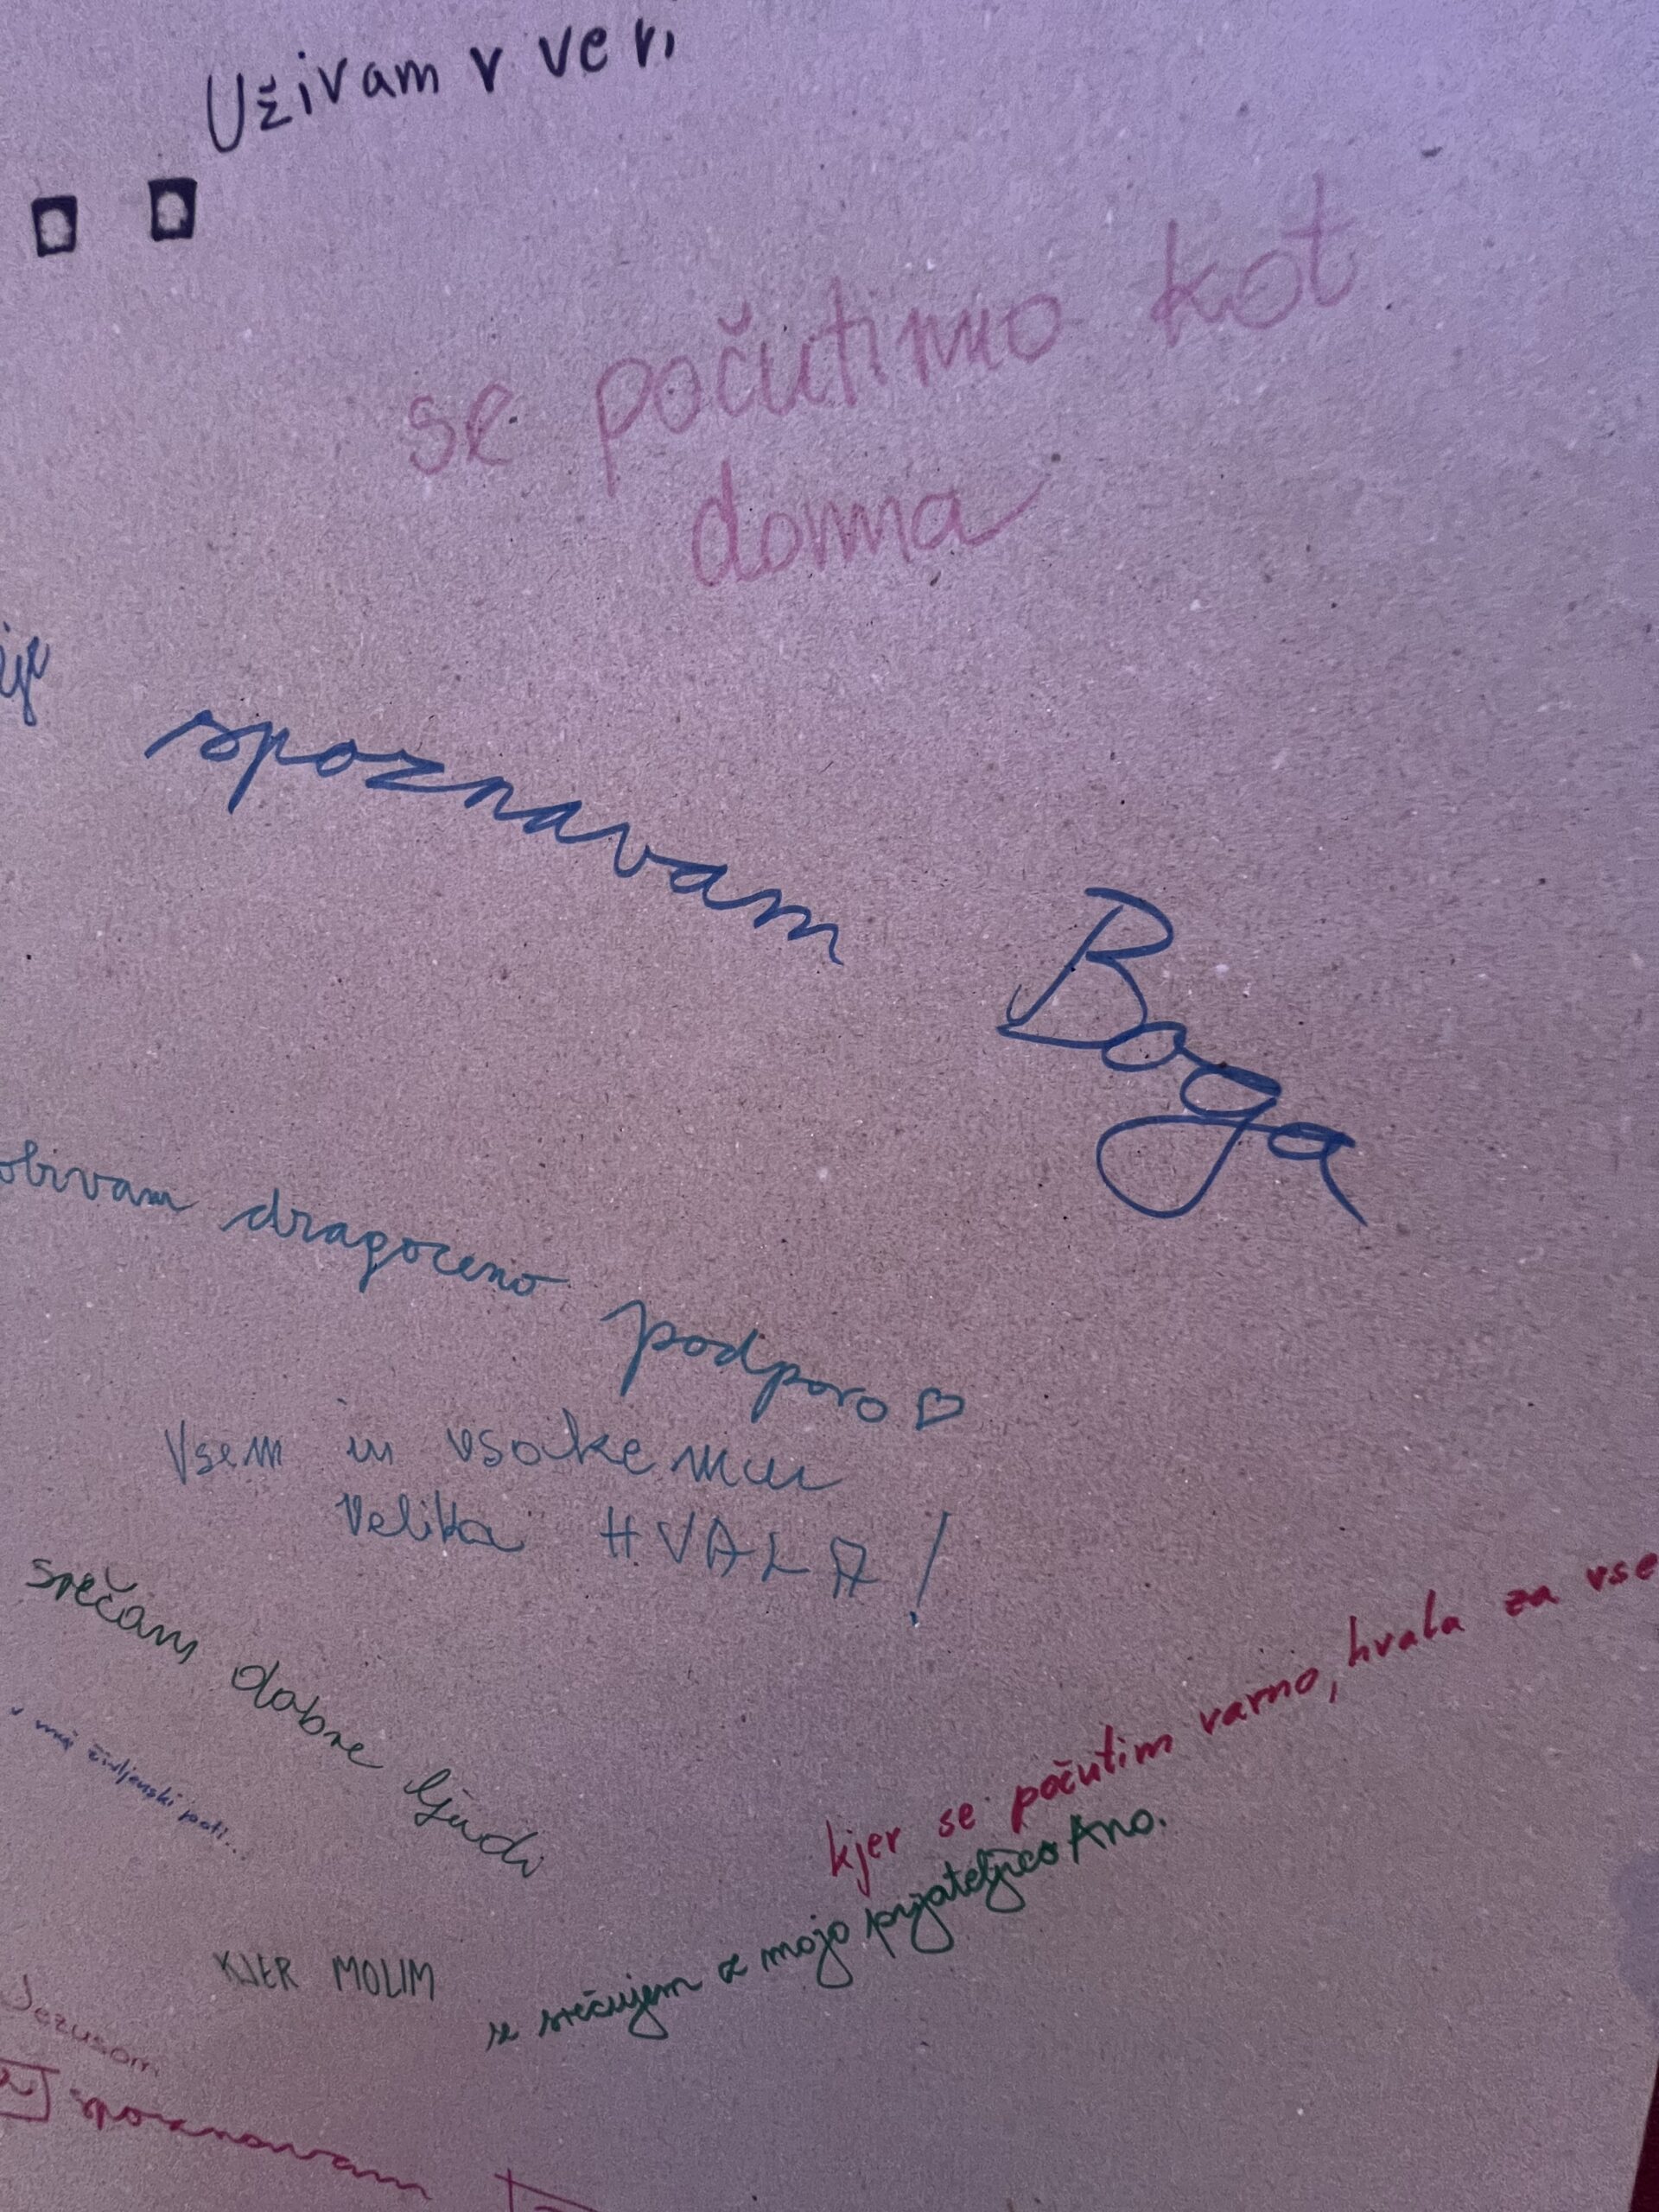 Uživam v veri
se počutimo kot
doma
spoznavam Boga
obivam dragoceno podporo ♡
Vsem in vsakemu
velika HVALA!
srečam dobre ljudi
kjer se počutim varno, hvala za vse
v moji življenski poti...
se srečujem z mojo prijateljico Ano.
KJER MOLIM
Jezusom
spoznavam